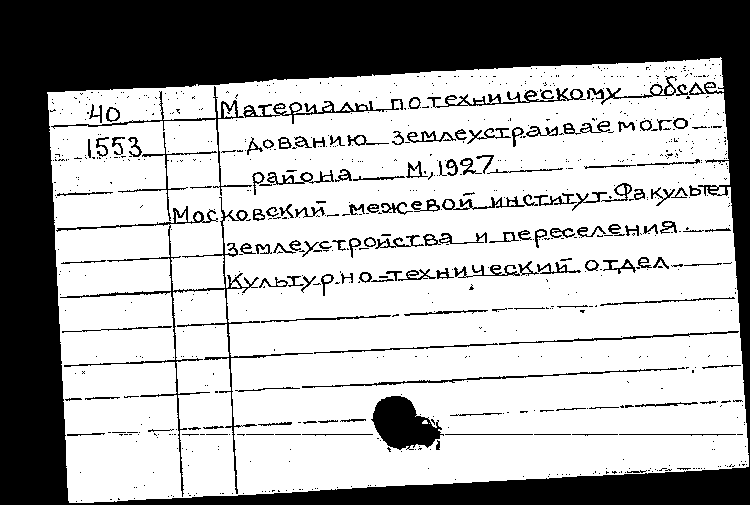 40 Материалы по техническому обсле-
1553 дованию землеустраиваемого
района. М., 1927.
Московский межевой институт. Факультет
землеустройства и переселения.
Культурно-технический отдел.